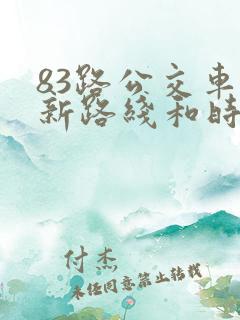 83路公交车
新路线和时
付杰
未经同意禁止转载